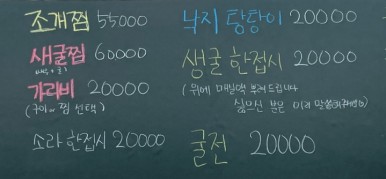 조개찜 55000
새굴찜 60000
가리비 20000
(구이or찜 선택)
소라 한접시 20000
낙지 탕탕이 20000
생굴 한접시 20000
(위에 매일액 뿌려드립니다
싫으신 분은 미리
굴전 20000